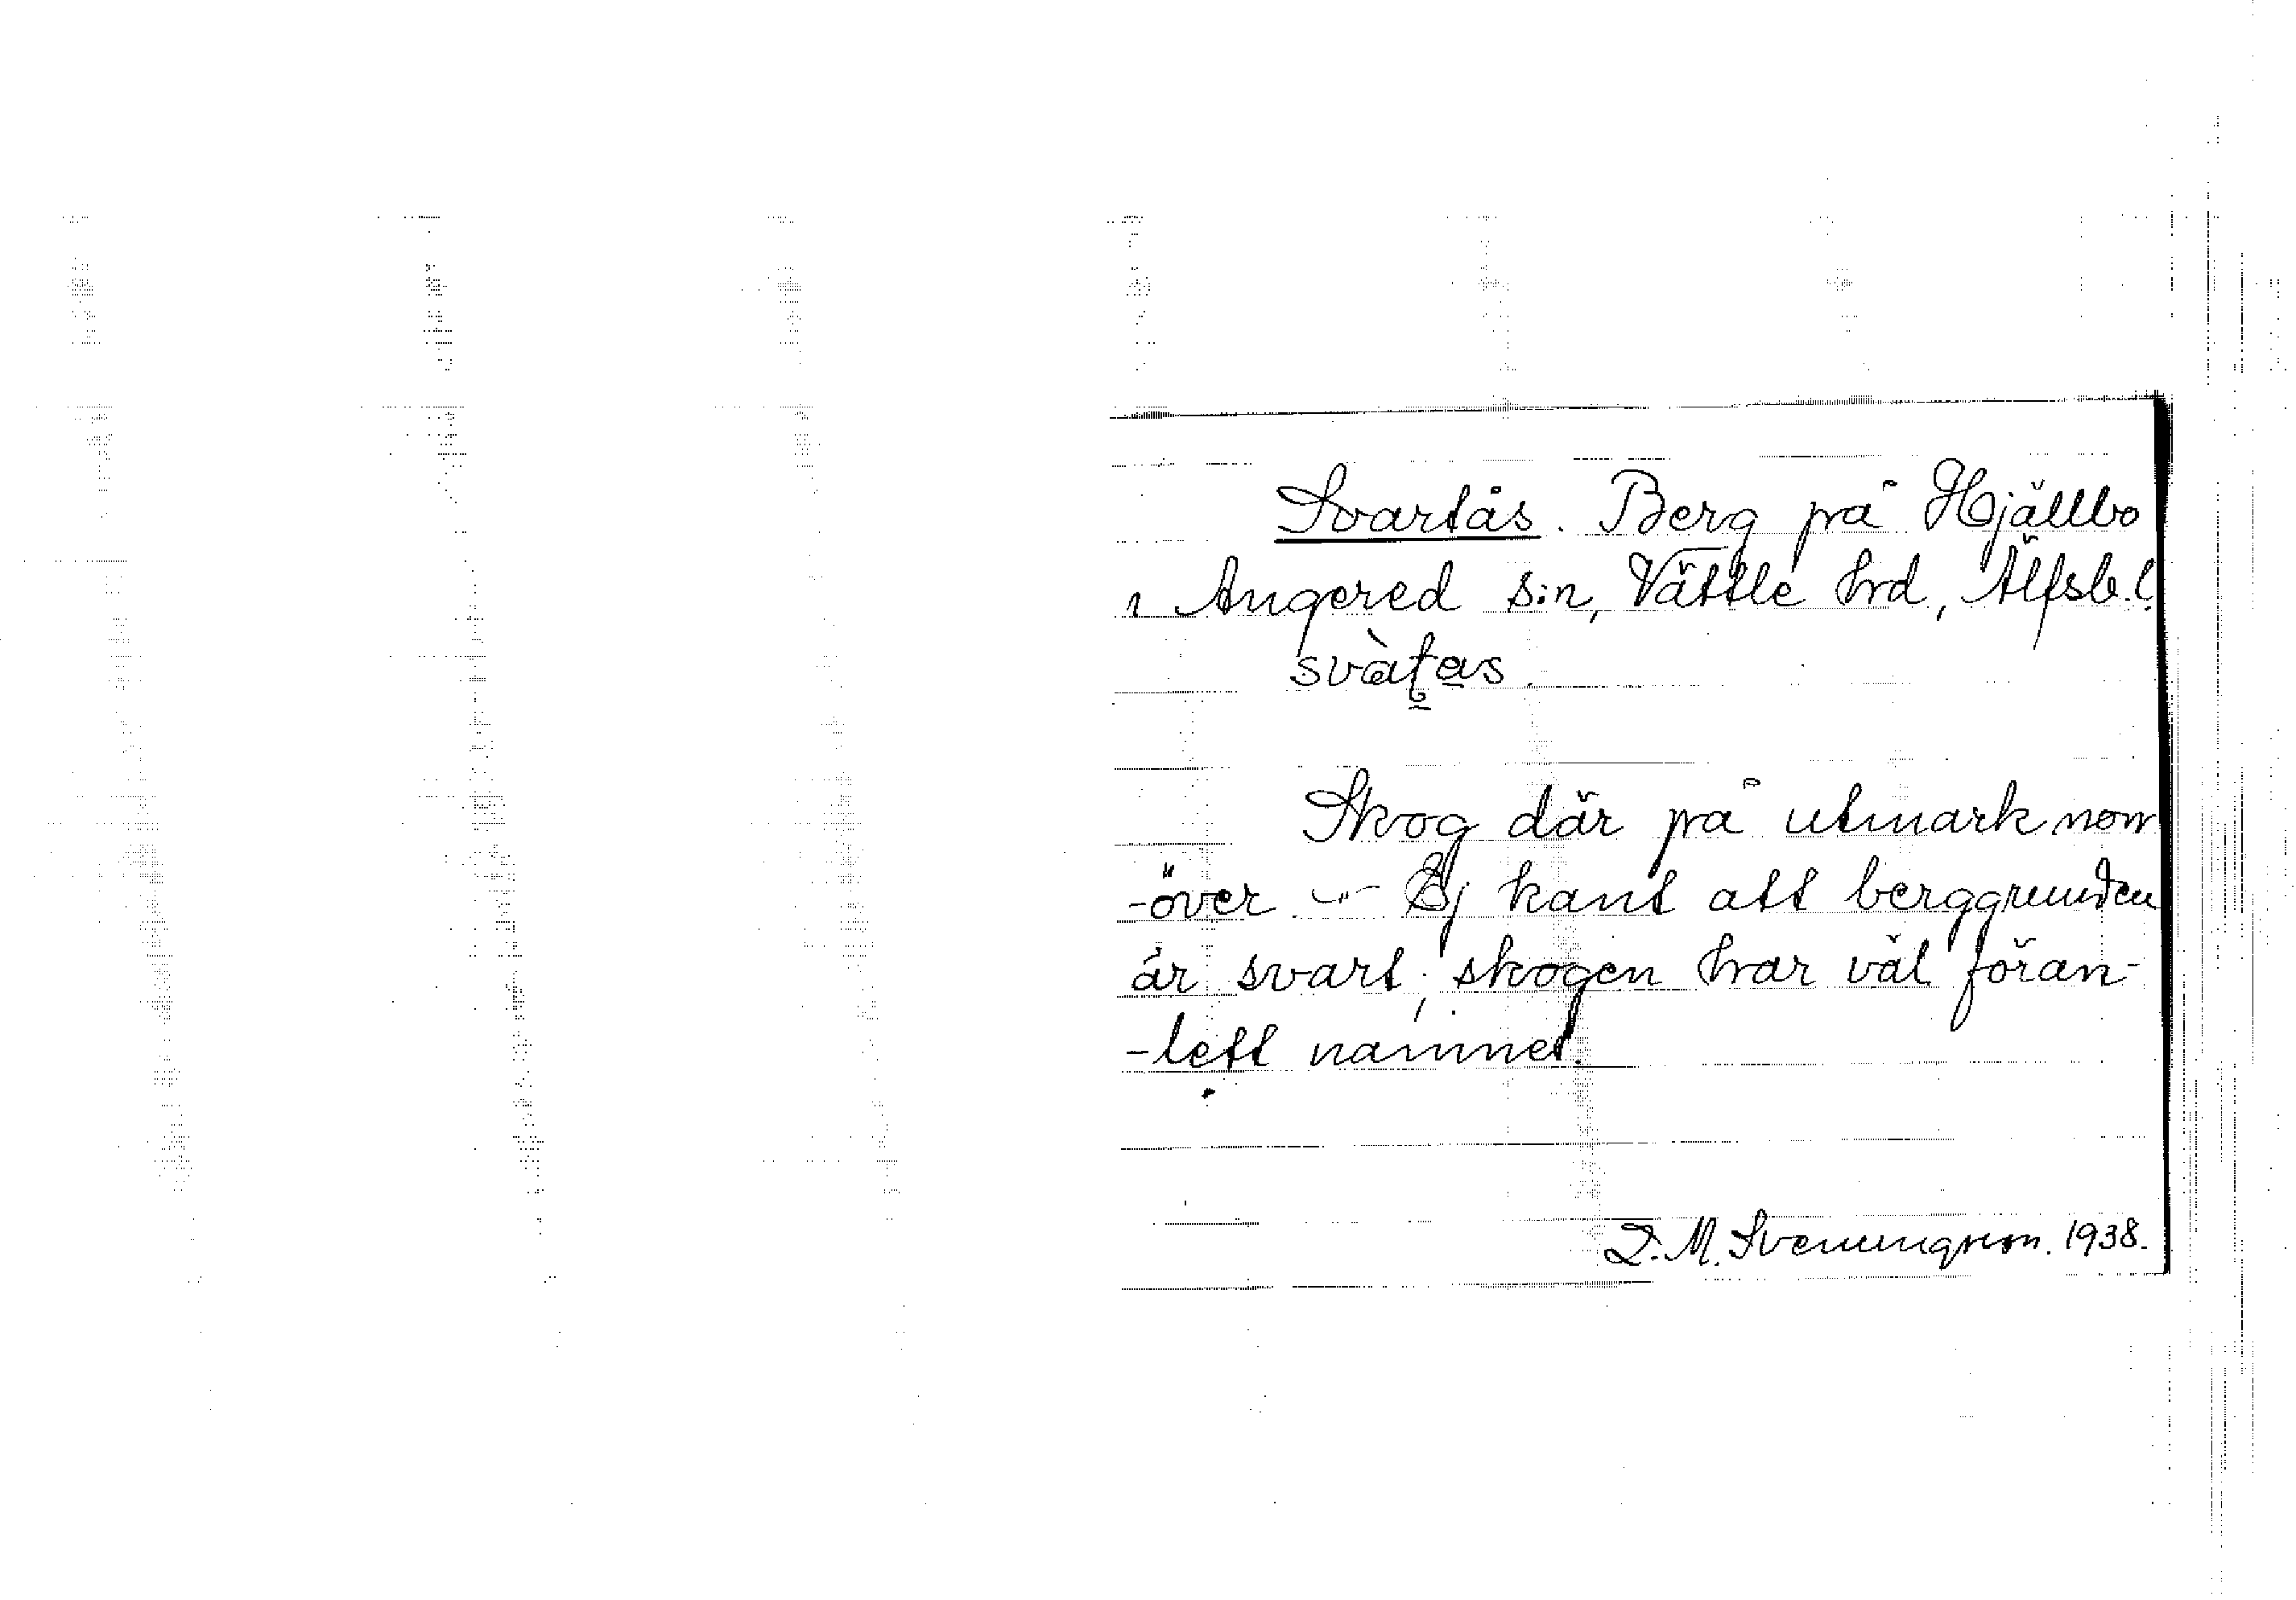 Svartås. Berg på Hjällbo
i Angered s:n, Vättle hrd, Älfsb. l.
Skog där på utmark norr
-över – Ej känt att berggrunden
är svart, skogen har väl föran-
-lett namnet.
D. M. Sveningsson. 1938.